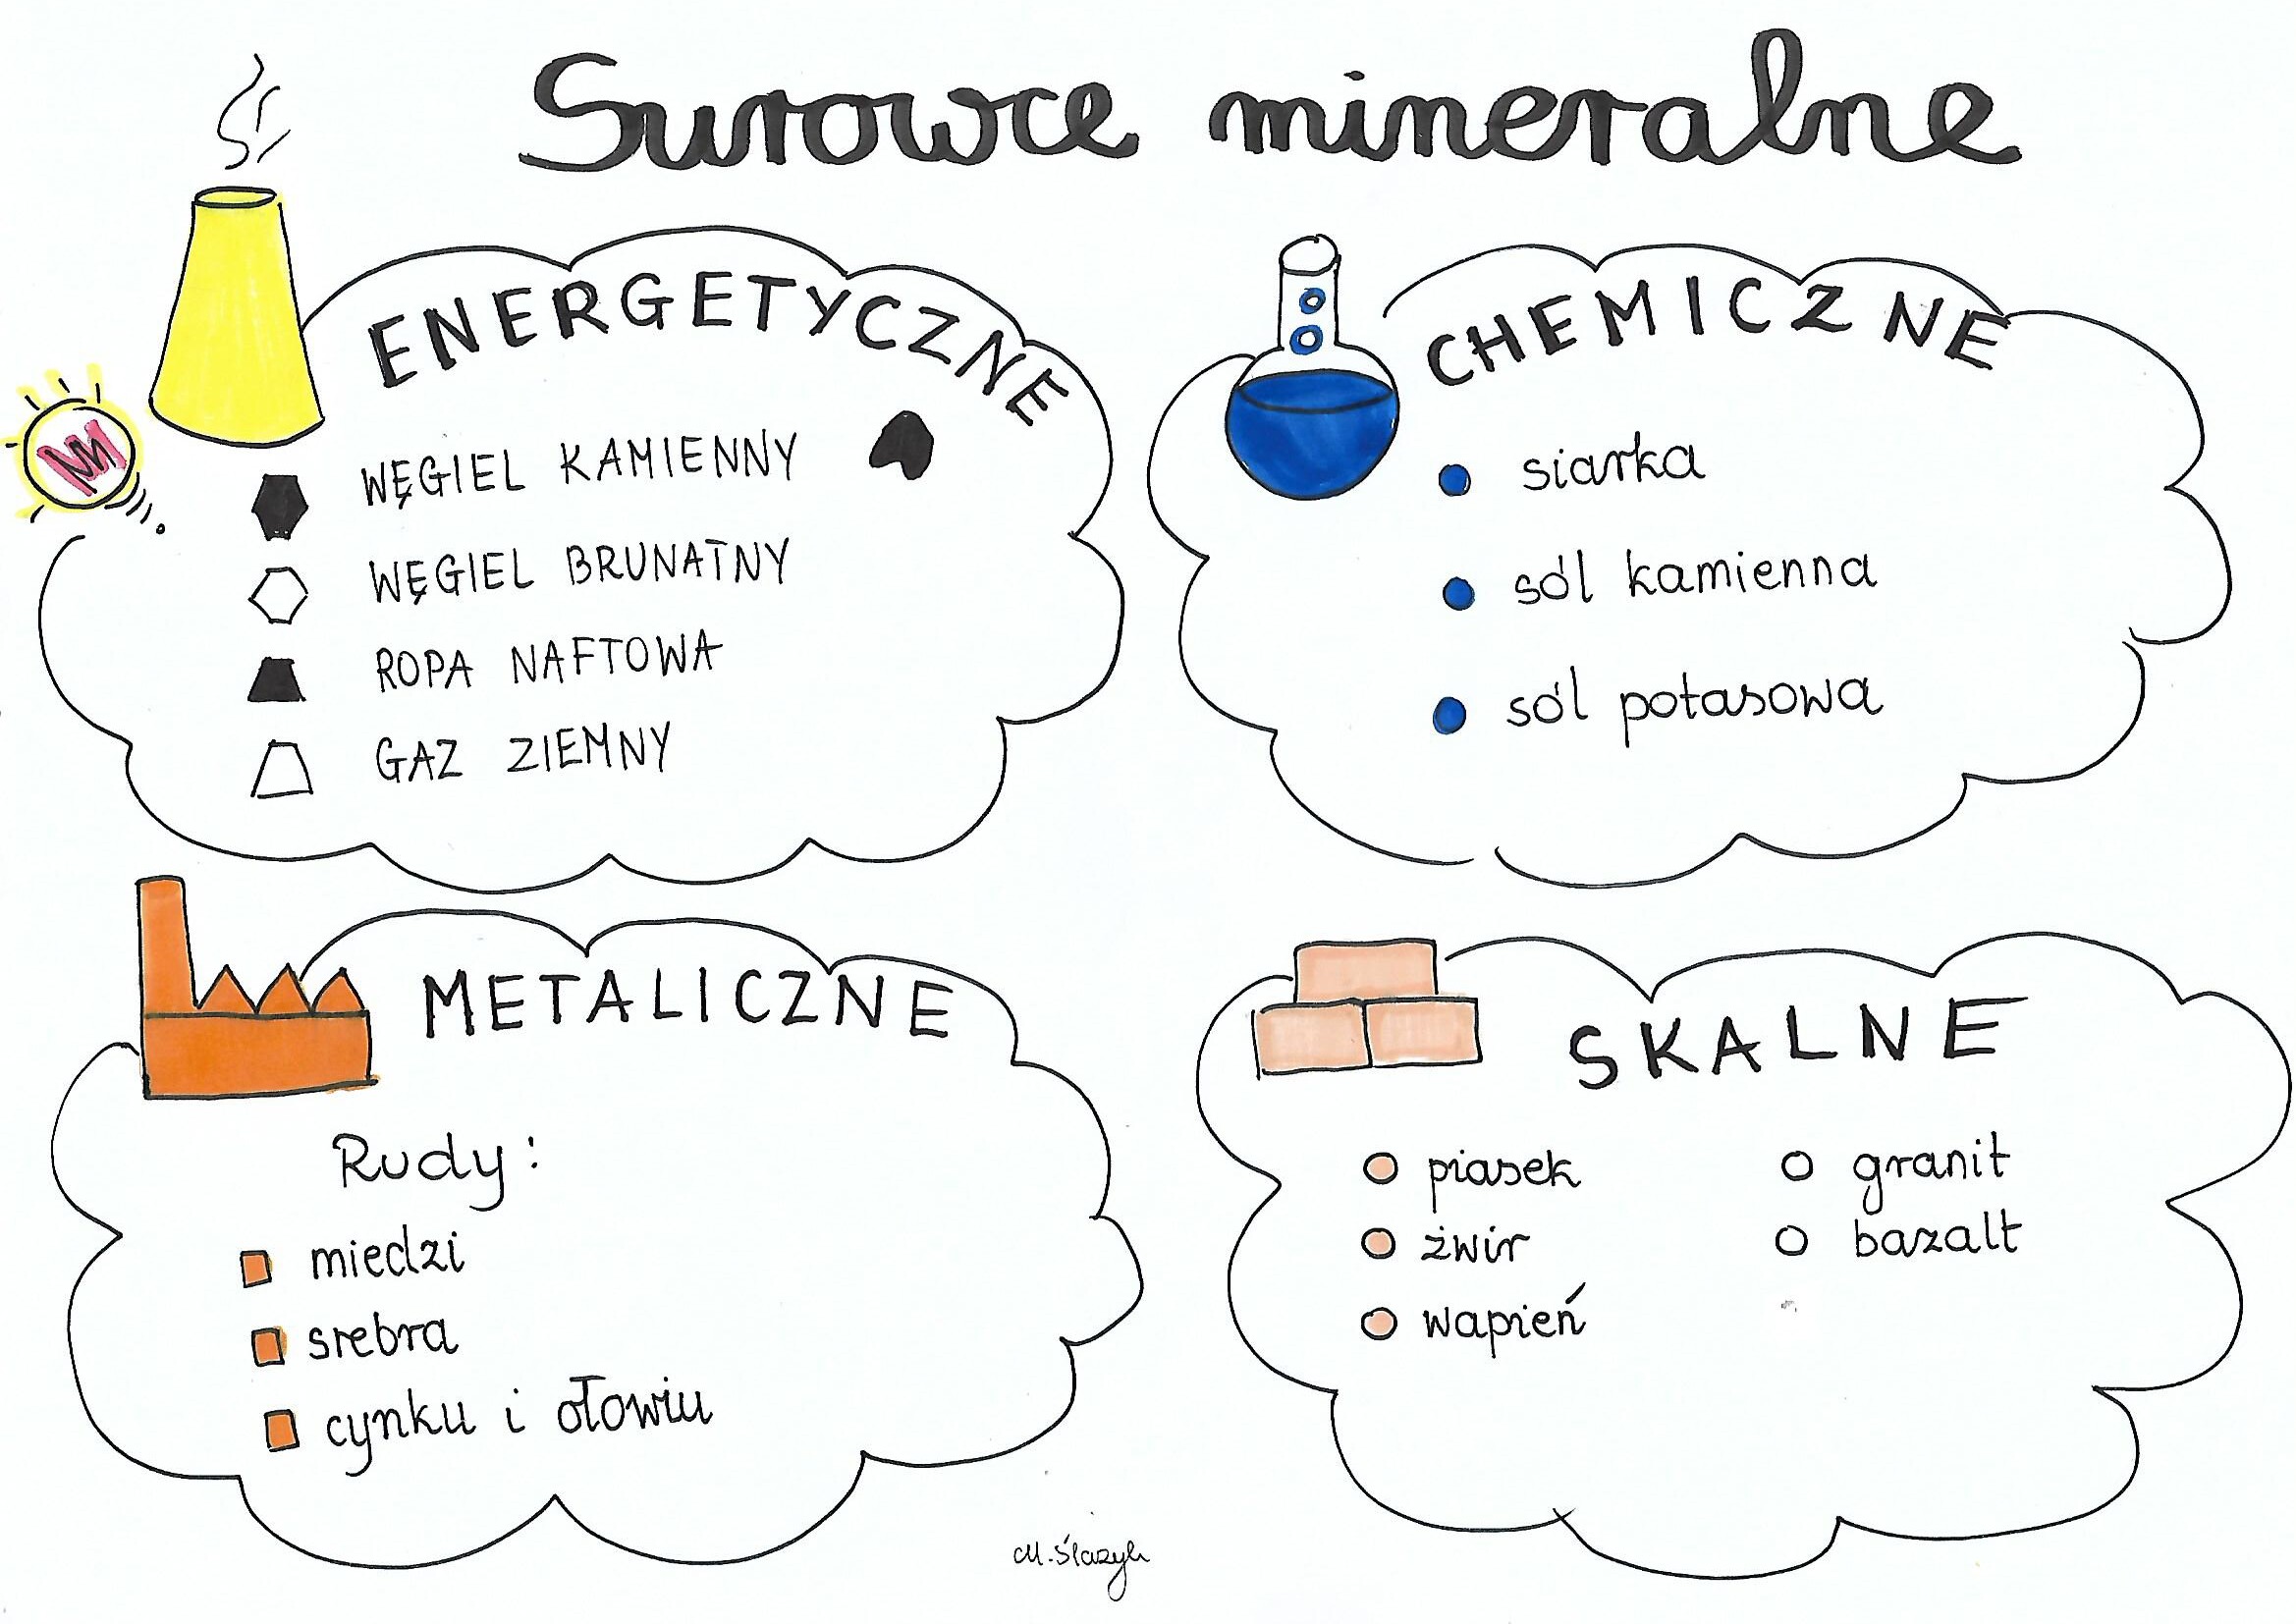 Surowce mineralne
ENERGETYCZNE
WĘGIEL KAMIENNY
WĘGIEL BRUNATNY
ROPA NAFTOWA
GAZ ZIEMNY
CHEMICZNE
siarka
sól kamienna
sól potasowa
METALICZNE
Rudy:
miedzi
srebra
cynku i ołowiu
SKALNE
piasek
żwir
wapień
granit
bazalt
M. Ślazyk